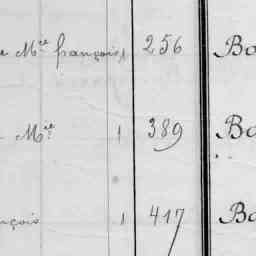 Mce françois 1 256 Bo
Mce 1 389 Bo
nçois 1 417 Bo